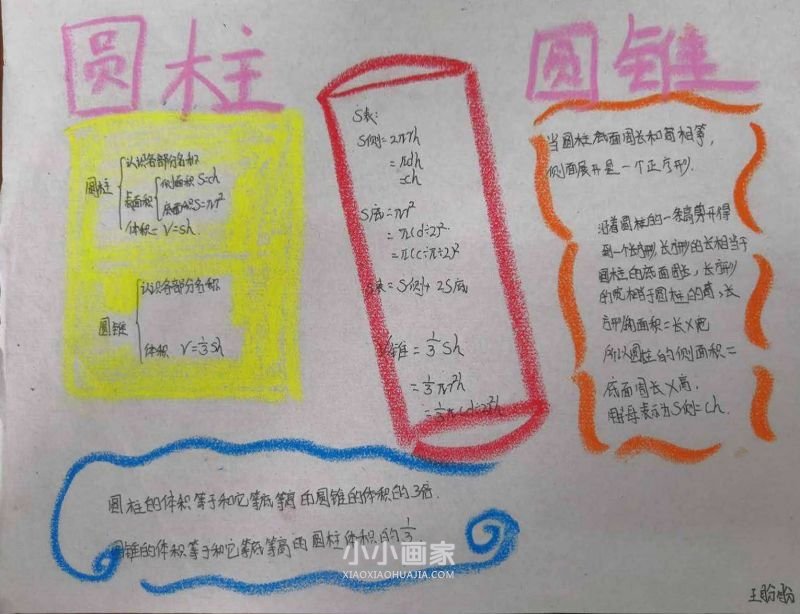 圆柱
圆锥
圆柱
认识各部分名称
表面积
侧面积 S=ch
底面积S=πr²
体积— V=sh
圆锥
认识各部分名称
体积 V=⅓Sh
S表:
S侧=2πrh
=πdh
=ch
S底=πr²
=π(d÷2)²
=π(c÷π÷2)²
S表=S侧+2S底
V锥=⅓Sh
=⅓πr²h
=⅓π(d÷2)²h
当圆柱底面周长和高相等,
侧面展开是一个正方形.
沿着圆柱的一条高剪开得
到一个长方形,长方形的长相当于
圆柱的底面周长,长方形
的宽相当于圆柱的高,长
方形的面积=长×宽
所以圆柱的侧面积=
底面周长×高.
用字母表示为S侧=Ch.
圆柱的体积等于和它等底等高的圆锥的体积的3倍.
圆锥的体积等于和它等底等高的圆柱体积的⅓
小小画家
XIAOXIAOHUAJIA.COM
王盼盼